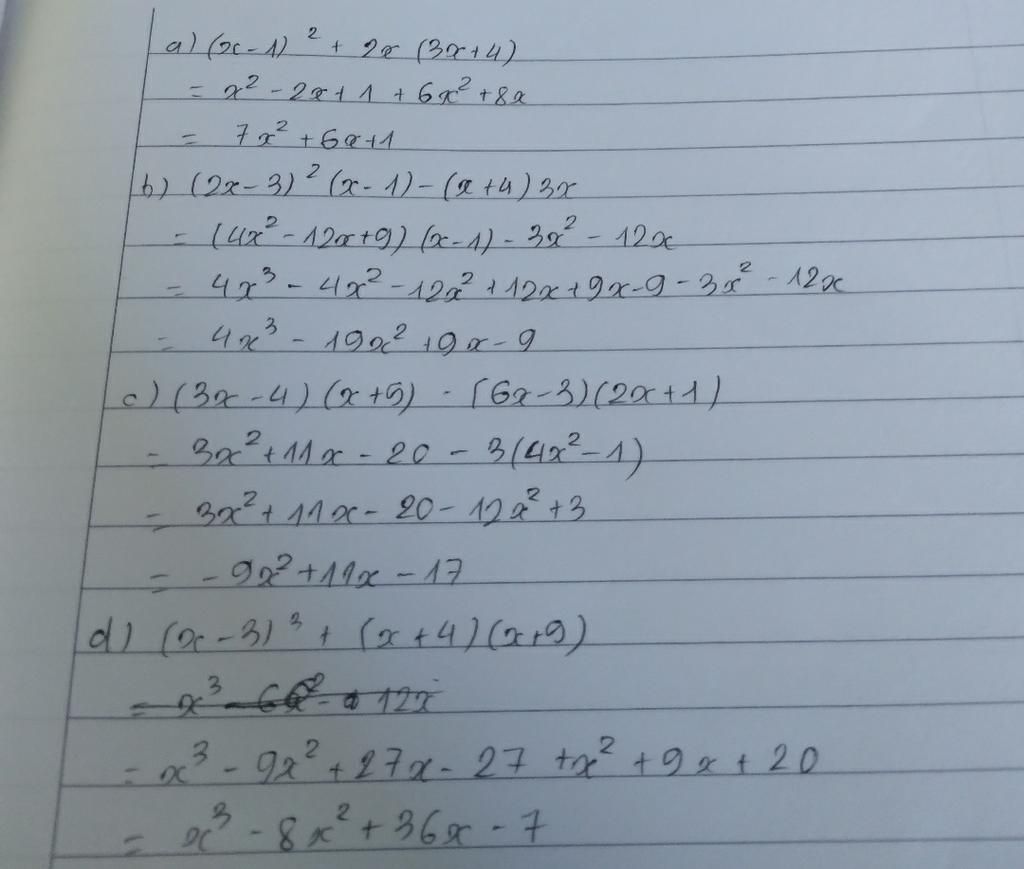 a) (x-1)² + 2x (3x+4)
= x² - 2x + 1 + 6x² + 8x
= 7x² + 6x + 1
b) (2x-3)² (x-1) - (x+4) 3x
= (4x² - 12x + 9) (x-1) - 3x² - 12x
= 4x³ - 4x² - 12x² + 12x + 9x - 9 - 3x² - 12x
= 4x³ - 19x² + 9x - 9
c) (3x-4) (x+5) - (6x-3)(2x+1)
= 3x² + 11x - 20 - 3(4x² - 1)
= 3x² + 11x - 20 - 12x² + 3
= - 9x² + 11x - 17
d) (x-3)³ + (x+4)(x+5)
= x³ - 6x² - 12x
= x³ - 9x² + 27x - 27 + x² + 9x + 20
= x³ - 8x² + 36x - 7